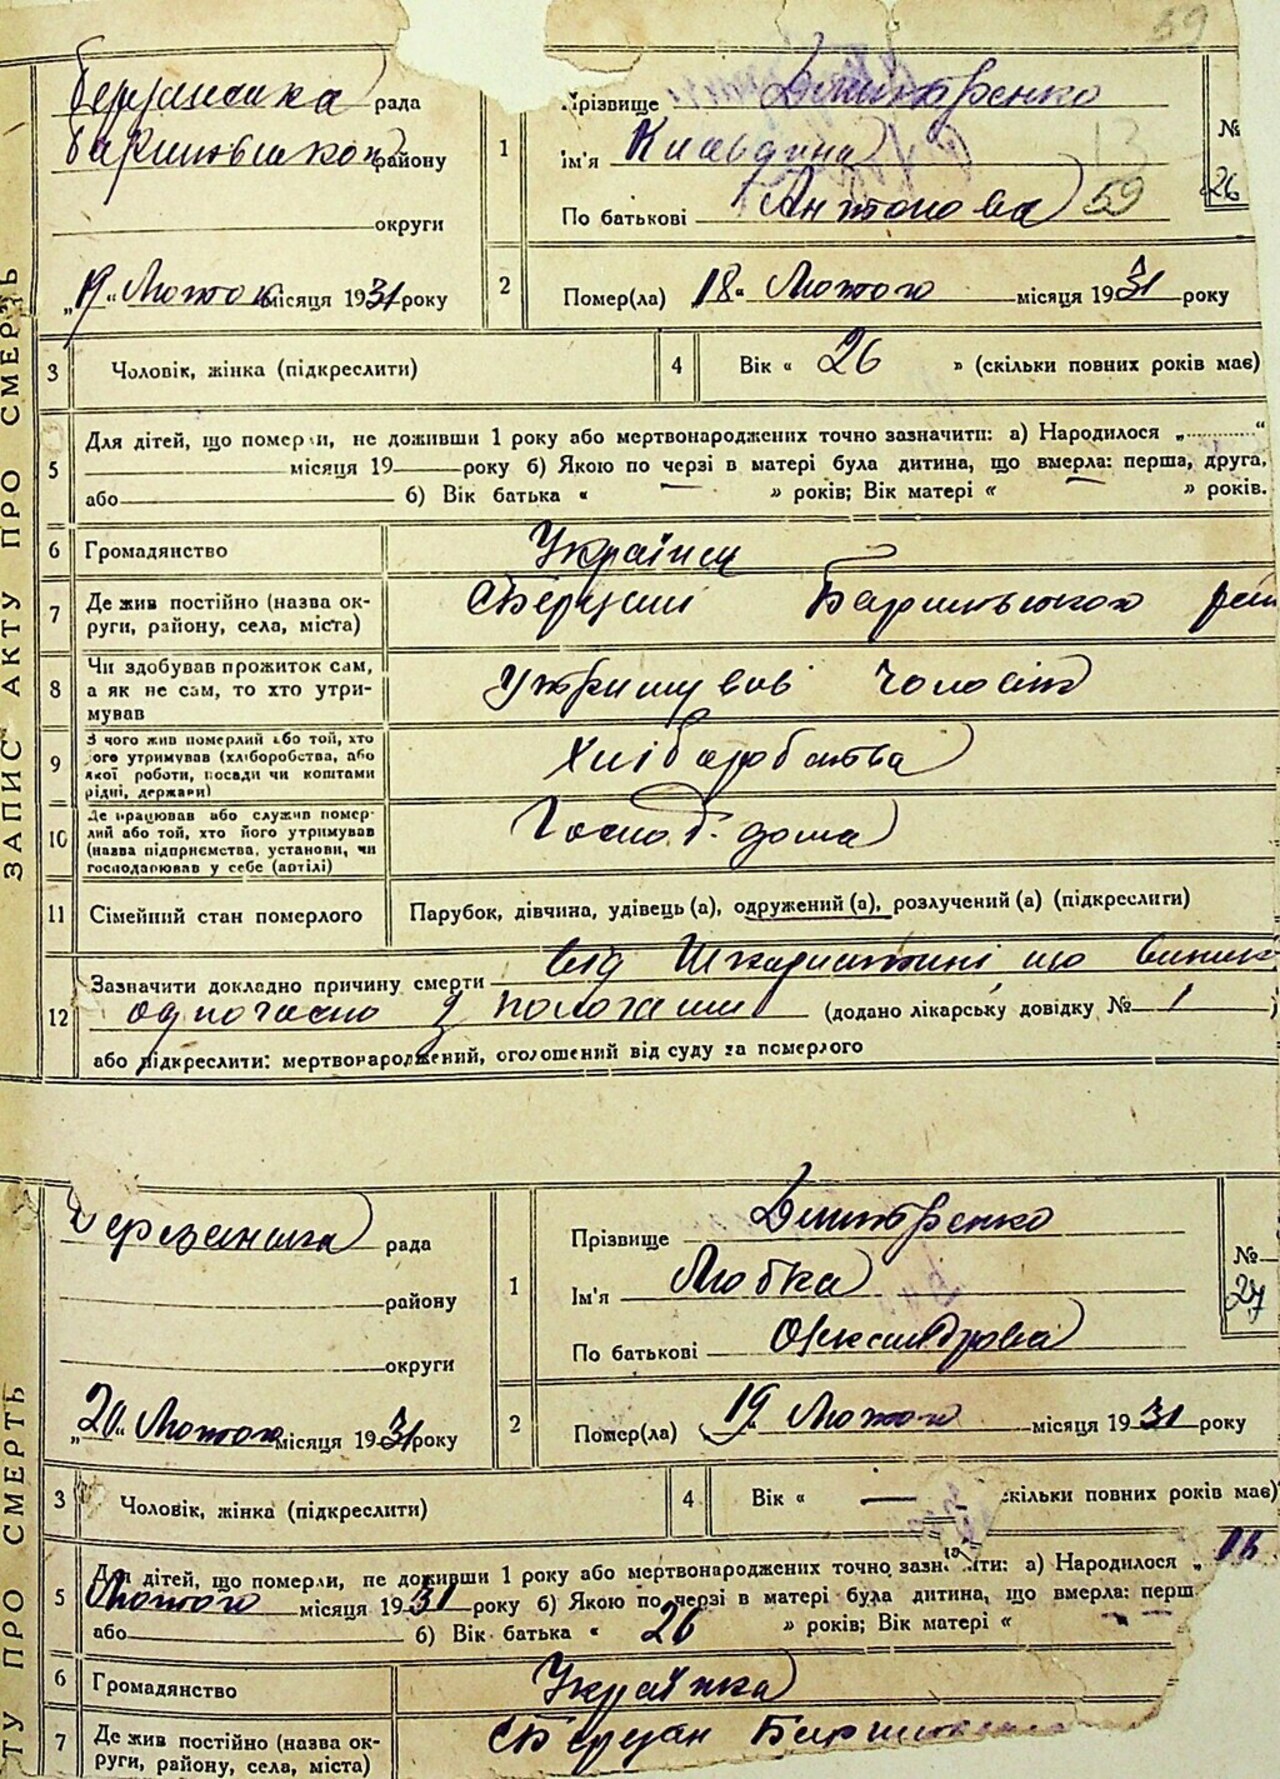 59
ЗАПИС АКТУ ПРО СМЕРТЬ
рада
району
округи
„19“ Лютого місяця 1931 року
1
Прізвище Дмитренко
Ім'я
По батькові Антонова
59
№ 26
2
Помер(ла) 18 Лютого місяця 1931 року
3 Чоловік, жінка (підкреслити)
4 Вік « 26 » (скільки повних років має)
5 Для дітей, що померли, не доживши 1 року або мертвонароджених точно зазначити: а) Народилося „
місяця 19 року б) Якою по черзі в матері була дитина, що вмерла: перша, друга,
або б) Вік батька « — » років; Вік матері « — » років.
6 Громадянство Українц
7 Де жив постійно (назва округи, району, села, міста)
8 Чи здобував прожиток сам, а як не сам, то хто утримував
Утримував чоловік
9 З чого жив померлий або той, хто його утримував (хліборобства, або якої роботи, посади чи коштами рідні, держави)
Хліборобства
10 Де працював або служив померлий або той, хто його утримував (назва підприємства, установи, чи господарював у себе (артілі)
Господ. дома
11 Сімейний стан померлого
Парубок, дівчина, удівець (а), одружений (а), розлучений (а) (підкреслити)
12 Зазначити докладно причину смерти від що
одночасно з пологами (додано лікарську довідку № 1 )
або підкреслити: мертвонароджений, оголошений від суду за померлого
ТУ ПРО СМЕРТЬ
рада
району
округи
„20“ Лютого місяця 1931 року
1
Прізвище Дмитренко
Ім'я Любка
По батькові Олександрова
№ 27
2
Помер(ла) 19 Лютого місяця 1931 року
3 Чоловік, жінка (підкреслити)
4 Вік « — скільки повних років має)
5 Для дітей, що померли, не доживши 1 року або мертвонароджених точно зазначіти: а) Народилося „
Лютого місяця 1931 року б) Якою по черзі в матері була дитина, що вмерла: перш
або б) Вік батька « 26 » років; Вік матері «
6 Громадянство Українка
7 Де жив постійно (назва округи, району, села, міста)